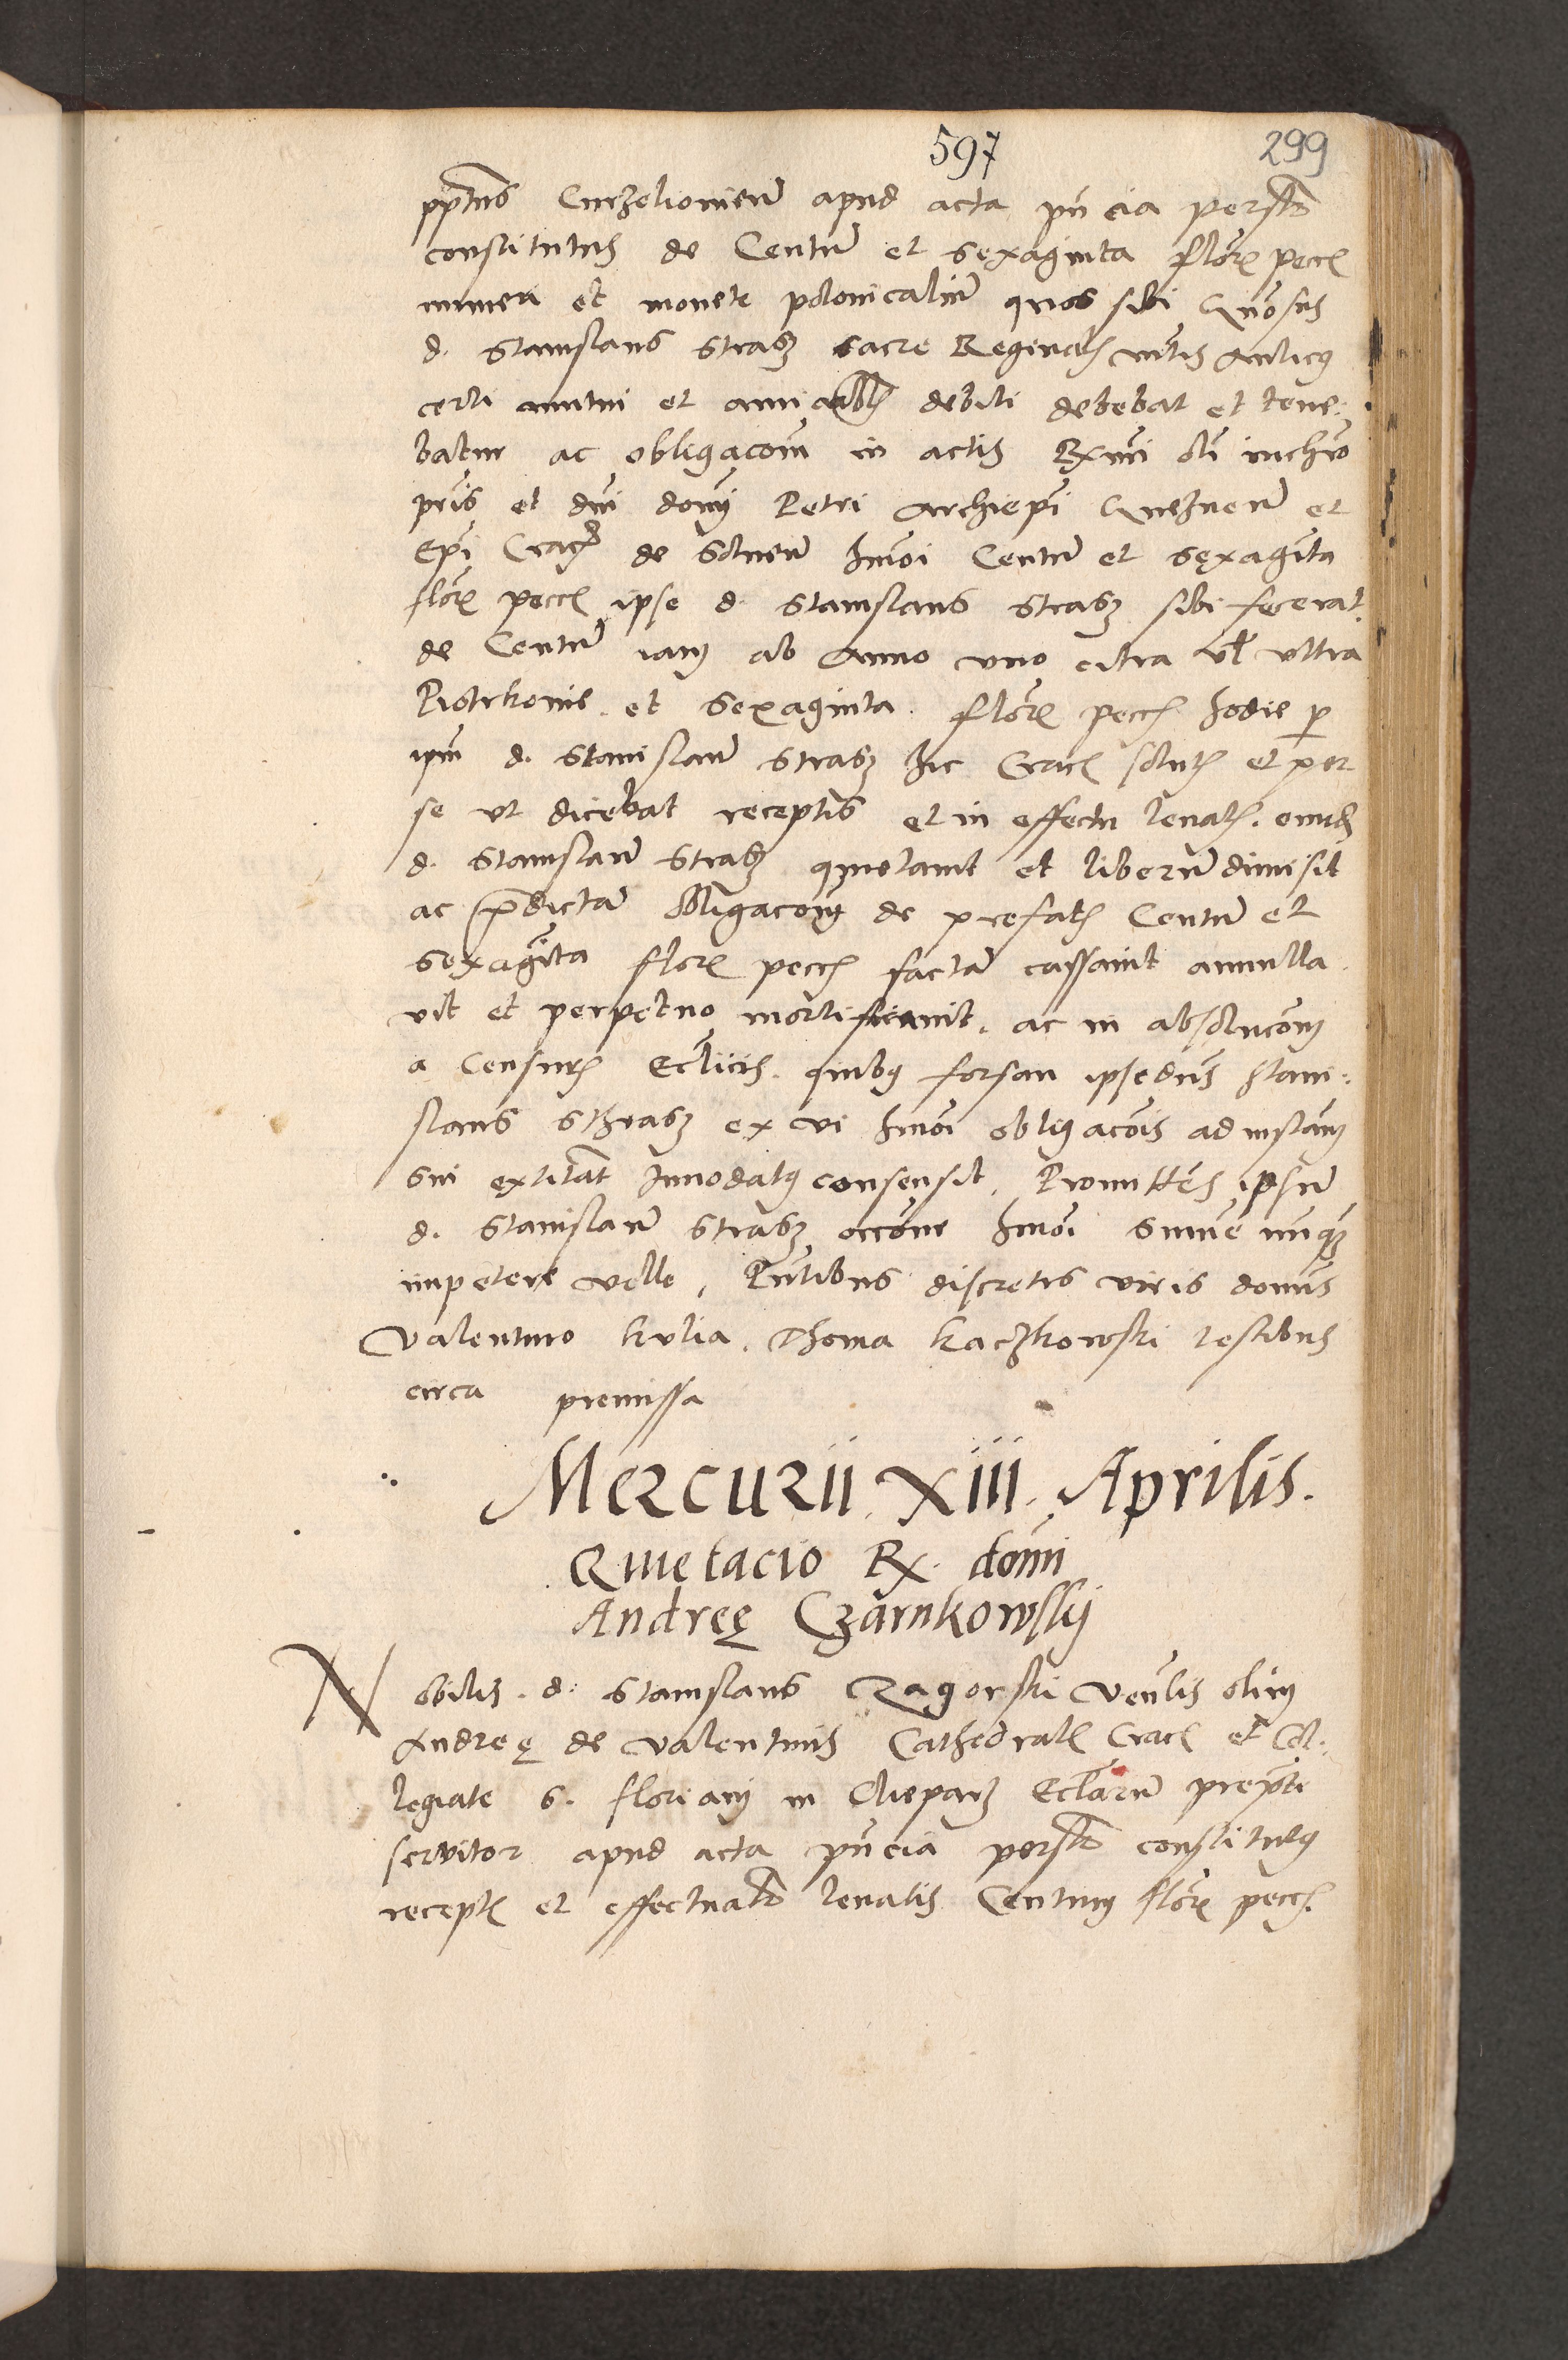 597 299
pptus Curzelionien apud acta pncia personalr
constitutus de Centu et sexaginta floren pecc
numeri et monete polonicaliu quos sibi Gnosus
d. Stanislaus Strasz sacre Reginal mtis aulicus
certi mutui et amicabil debiti debebat et tene:
batur ac obligacom in actis Rxmi oli in chro
pris et dni domi Petri Archiepi Gneznen et
Epi Crac de solven hmoi Centu et sexaginta
floren pecc ipse d. Stanislaus Strasz sibi fecerat
de Centu iam ab Anno uno citra vel ultra
Piotrkovie. et Sexaginta. floren pecc hodie per
ipm d. Stanislaum Strasz hic Crac solut et per
se ut dicebat receptis et in effectu levat. eundem
d. Stanislaum Strasz quietavit et liberu dimisit
ac predicta obligacom de prefat Centu et
sexaginta floren pecc facta cassavit annulla.
vit et perpetuo mortificavit. ac in absolucom
a Censur Ecclicis. quibus forsan ipse dns Stani:
slaus Sthrasz ex vi hmoi obligacois ad instam
sui extitat Innodatus consensit. Promittes ipsum
d. Stanislaum Strasz occone hmoi summe nunquam
impetere velle. Pntibus discretis viris domis
Valentino Kulia. Thoma Kaczkowski testibus
circa premissa
Mercurii. Xiii. Aprilis.
Quietacio Rx. domi
Andreę Czarnkowsky
Nobilis. d. Stanislaus Zagorski Venlis olim
Andreę de Valentinis Cathedral Crac et Col:
legiate S. Floriani in Clepars Ecclaru prepti
servitor apud acta pncia personalr constitutus
recept et effectualr levatis Centum floren pecc.